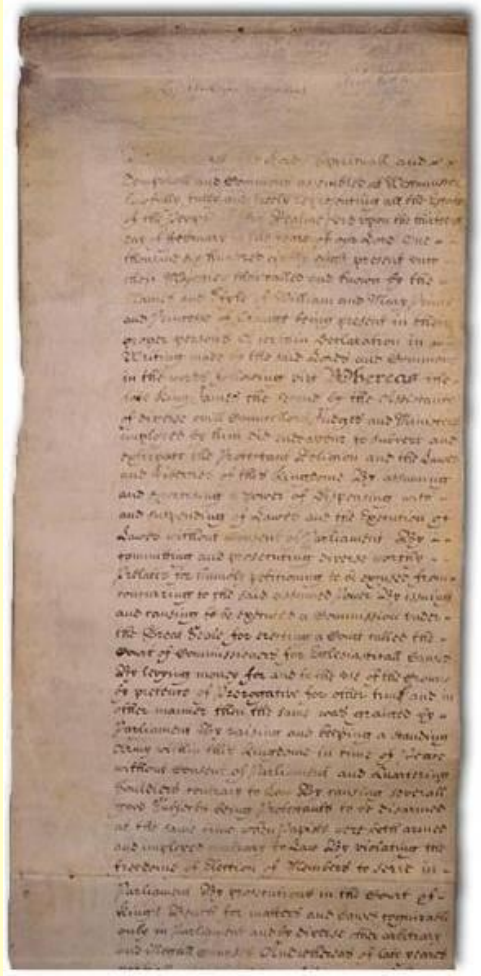 Lords Spirituall and
Temporall and Commons assembled at Westminster
Lawfully fully and freely representing all the Estates
of the People of this Realme did upon the thirteenth
day of February in the yeare of our Lord One
thousand six hundred eighty eight present unto
their Majesties then called and known by the
Names and Style of William and Mary Prince
and Princess of Orange being present in their
proper persons a certain Declaration in
Writing made by the said Lords and Commons
in the words following viz Whereas the
late King James the Second by the Assistance
of diverse evill Councellors Judges and Ministers
imployed by him did endeavour to subvert and
extirpate the Protestant Religion and the Lawes
and Liberties of this Kingdome By assuming
and exercising a power of Dispensing with
and suspending of Lawes and the Execution of
Lawes without Consent of Parliament By
committing and prosecuting diverse worthy
Prelates for humbly petitioning to be excused from
concurring to the said assumed Power By issuing
and causing to be executed a Commission under
the Great Seale for erecting a Court called the
Court of Commissioners for Ecclesiasticall Causes
By levying money for and to the use of the Crowne
by pretence of Prerogative for other time and in
other manner then the same was granted by
Parliament By raising and keeping a standing
Army within this Kingdome in time of Peace
without Consent of Parliament and Quartering
Souldiers contrary to Law By causing severall
good Subjects being Protestants to be disarmed
at the same time when Papists were both armed
and imployed contrary to Law By violating the
freedome of Election of Members to serve in
Parliament By prosecutions in the Court of
Kings Bench for matters and causes cognizable
only in Parliament and by diverse other arbitrary
and illegall courses And whereas of late yeares